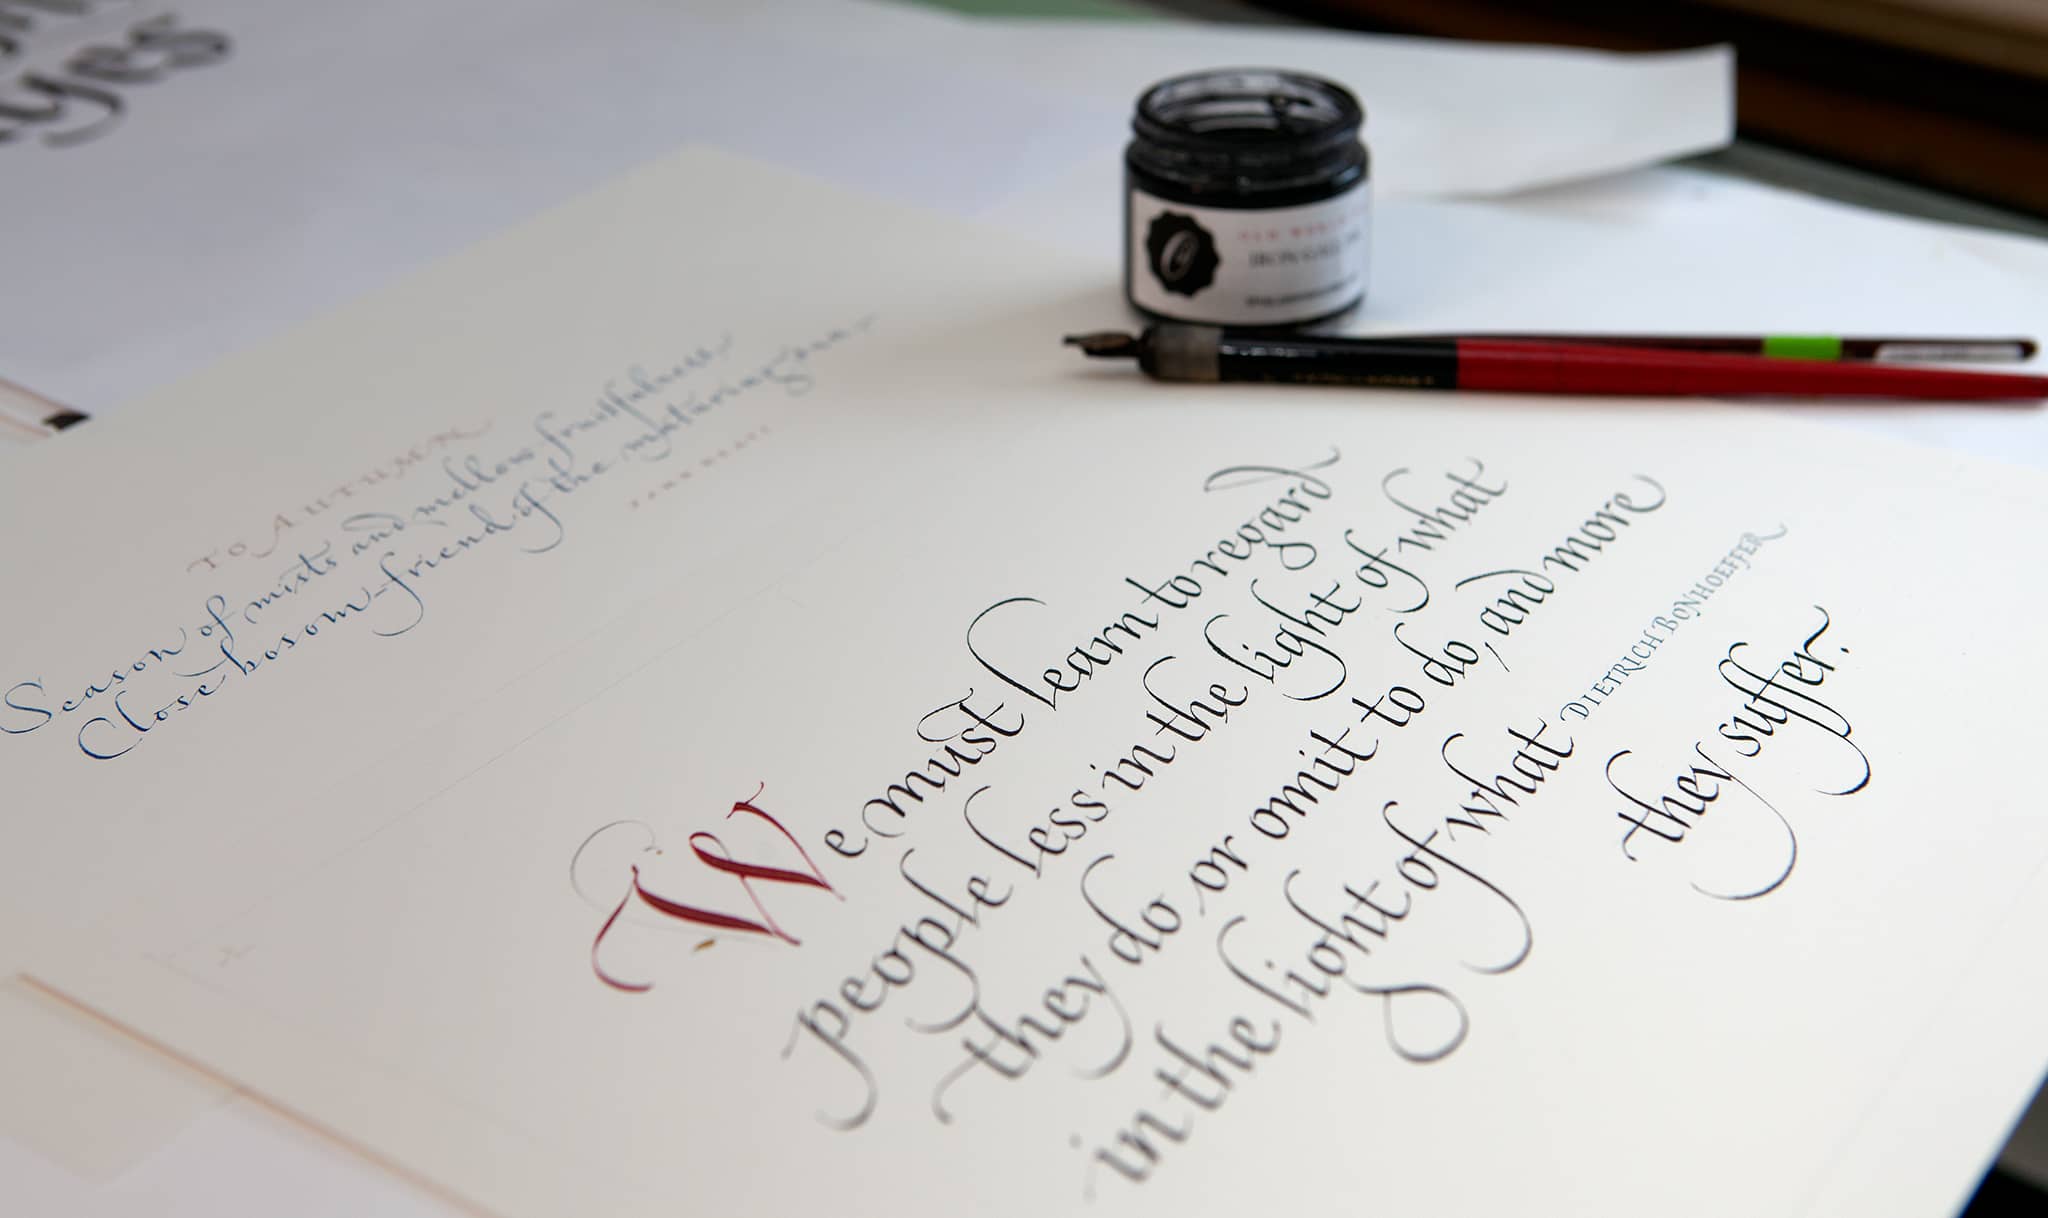 yes
TO AUTUMN
Season of mists and mellow fruitfulness,
Close bosom-friend of the maturing sun,
JOHN KEATS
We must learn to regard
people less in the light of what
they do or omit to do, and more
in the light of what
DIETRICH BONHOEFFER
they suffer.
OLD WORLD
IRON GALL INK